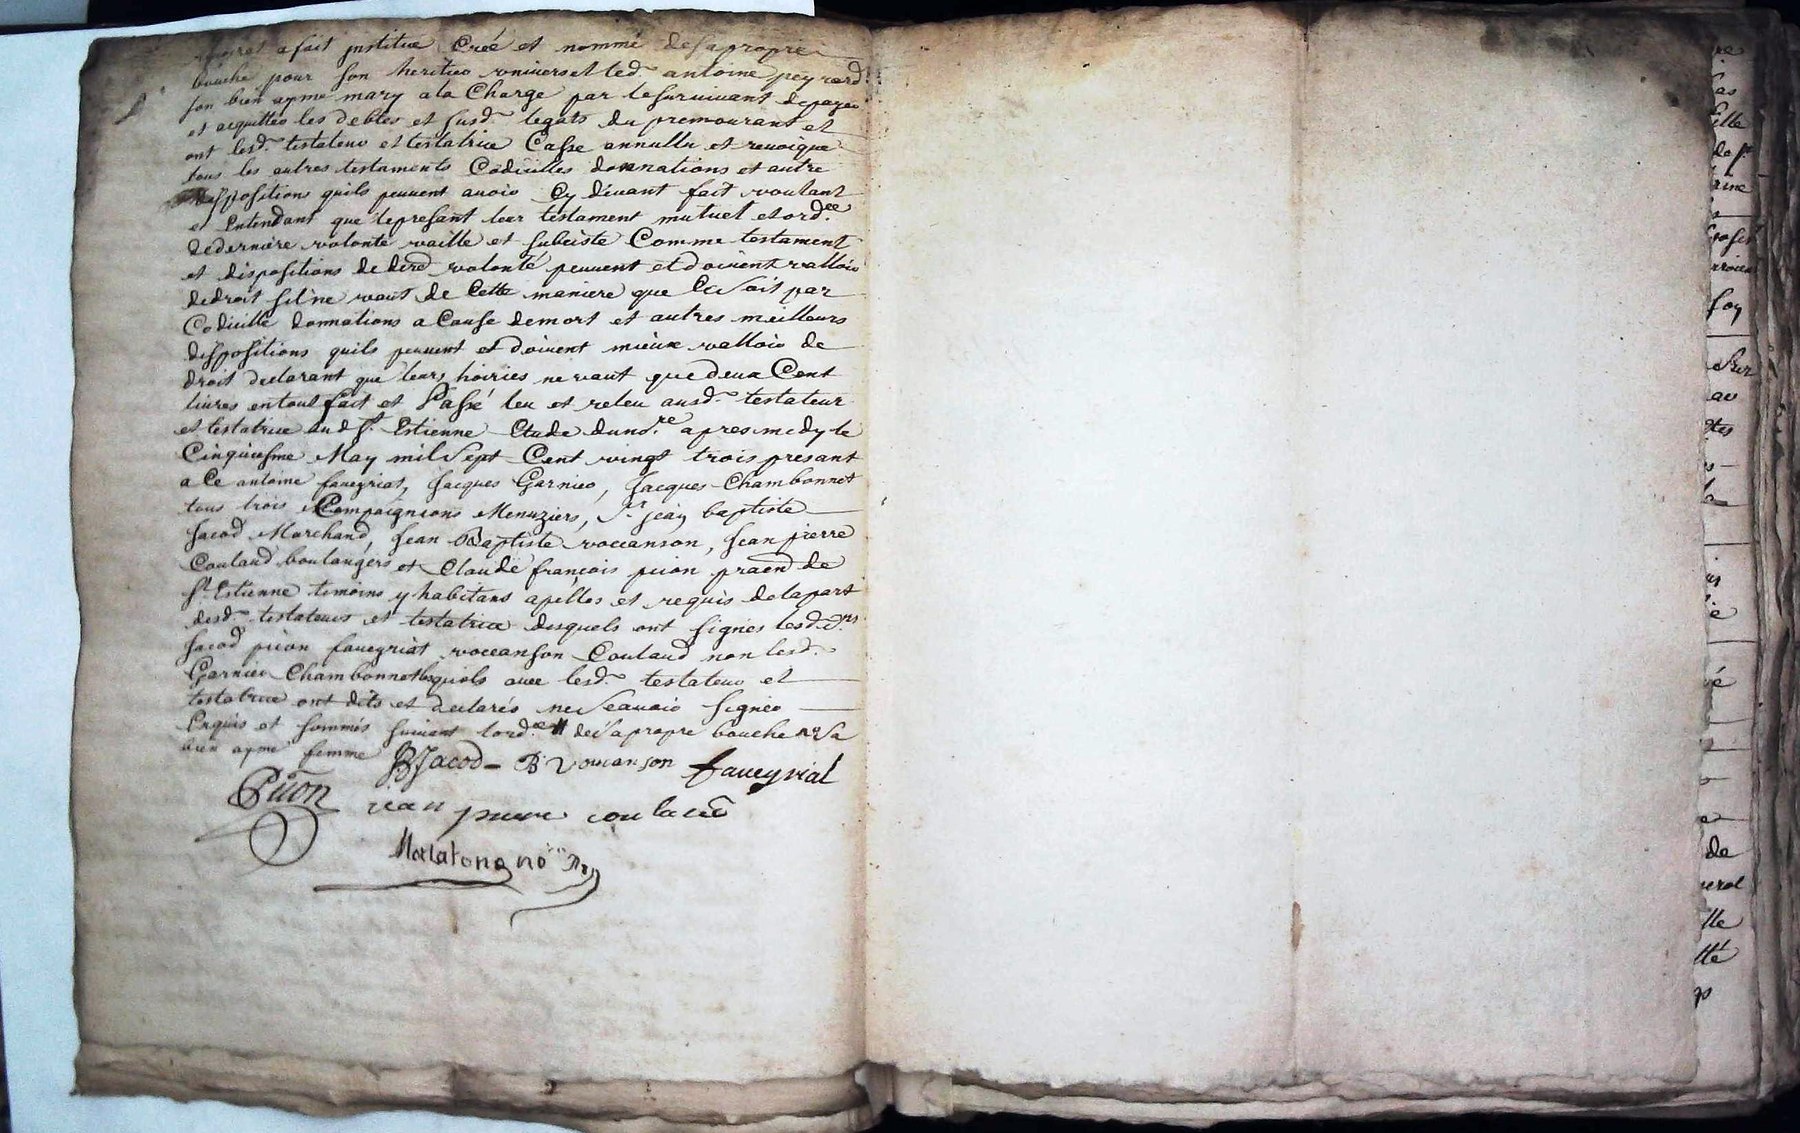 a fait institue Créé et nommé desapropre
bouche pour son heritier universel led. antoine peyrard
son bien aymé mary ala Charge par lesurvivant depayer
et acquitter les debtes et susd. legats du premourant et
ont lesd. testateur et testatrice Casse annullu et revoique
tous les autres testaments Codicilles donnations et autre
dispositions quils peuvent avoir Cy divant fait voulant
et Entendant que lepresant leur testament mutuel et ord.ce
dederniere volonté vaille et subciste Comme testament
et dispositions de derd volonté peuvent et doivent valloir
dedroit silne vaut de Cette maniere que Ce soit par
Codicille donnations a Cause demort et autres meilleurs
dispositions quils peuvent et doivent mieux valloir de
droit declarant que leurs hoiries ne vaut que deux Cent
livres entout fait et Passé leu et releu ausd. testateur
et testatrice aud St. Estienne Etude dund.re apres midy le
Cinquiesme May mil sept Cent vingt trois presant
a Ce antoine faveyrial, Jacques Garnier, Jacques Chambonnet
tous trois Compaignions Menuziers, Sr. jean baptiste
Jacod Marchand, Jean Baptiste voccanson, Jean pierre
Coulaud boulangers et Claude françois picon pratn de
St. Estienne temoins y habitans apellés et requis delapart
desd. testateurs et testatrice desquels ont signés lesd.
Jacod picon faveyrial voccanson Coulaud non lesd.
Garnier Chambonnet lesquels avec lesd. testateur et
testatrice ont dits et declarés ne Seavoir signer
Enquis et sommés suivant lord.ce # de sa propre bouche sa
bien aymé femme
BJacod B Voccanson faveyrial
Picon jean pierre coulaud
Mallatong no.re